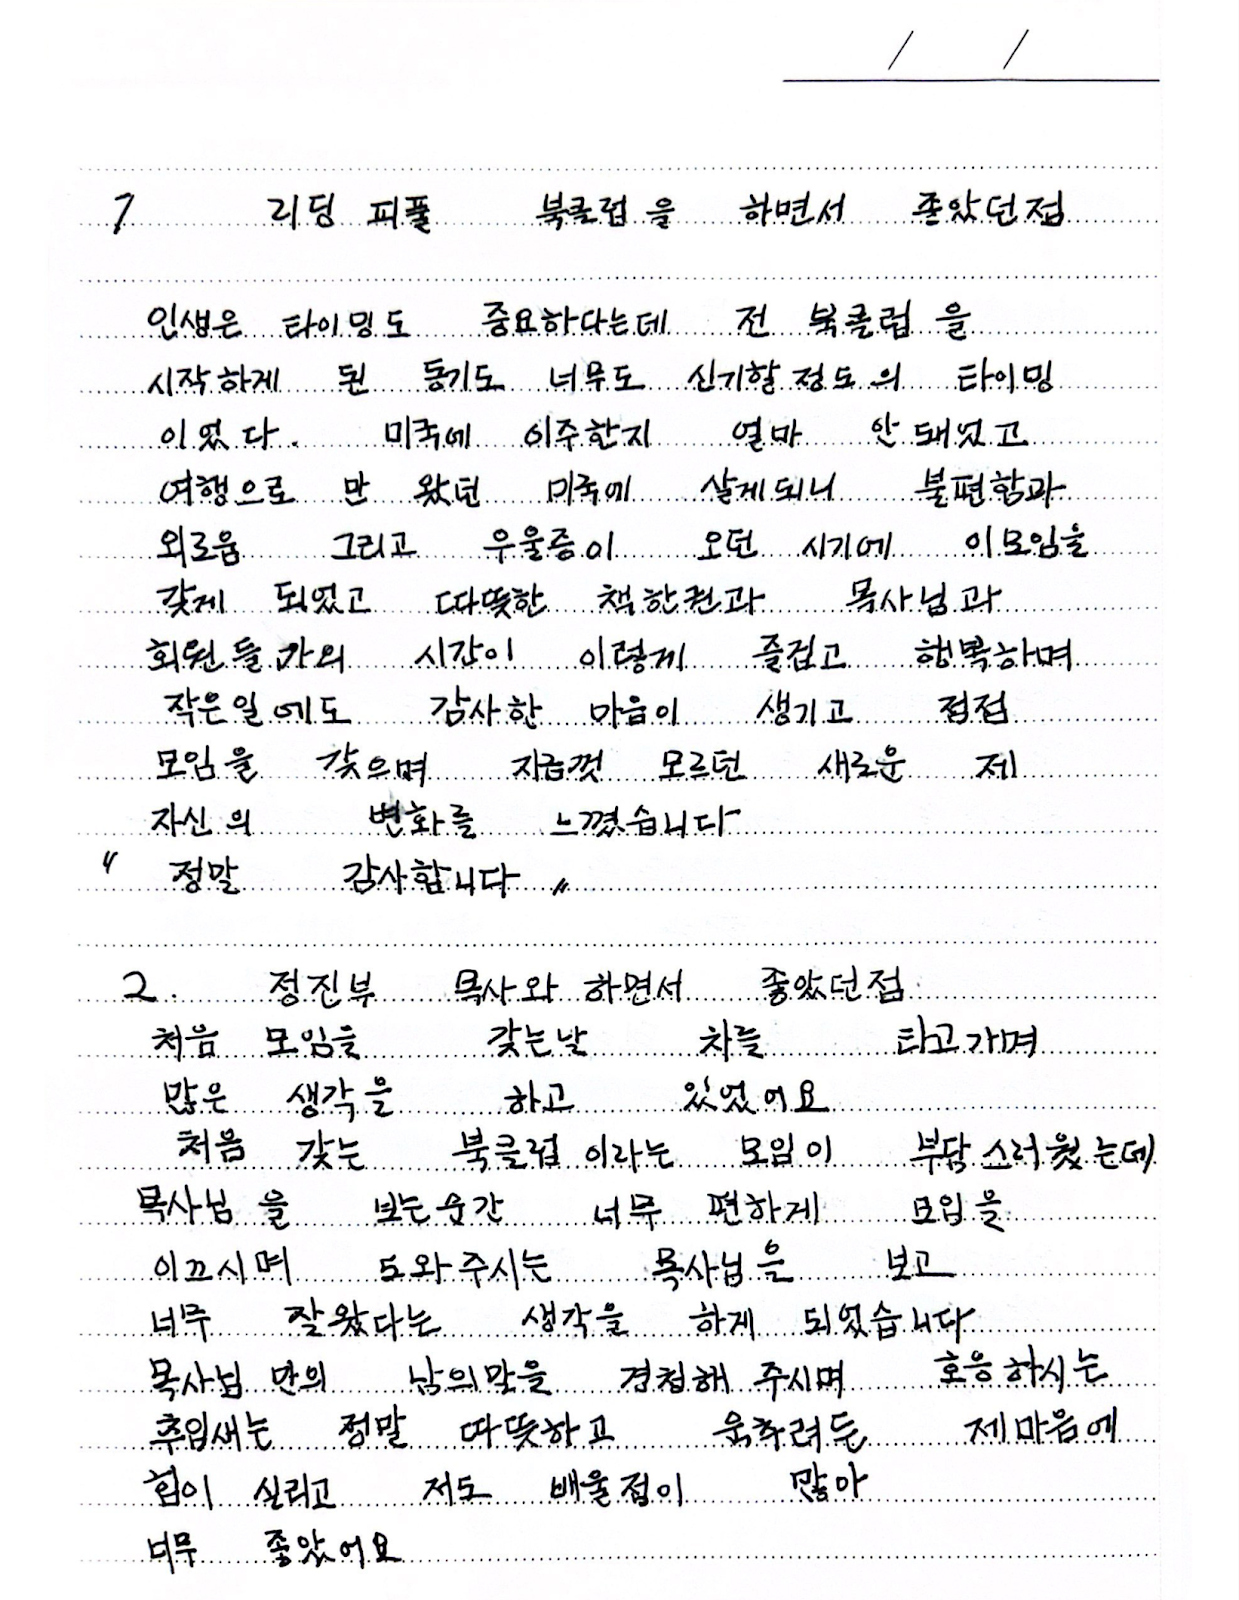 1 리딩 피플 북클럽을 하면서 좋았던점
인생은 타이밍도 중요하다는데 전 북클럽을
시작하게 된 동기도 너무도 신기할정도의 타이밍
이었다. 미국에 이주한지 얼마 안돼었고
여행으로 만 왔던 미국에 살게되니 불편함과
외로움 그리고 우울증이 오던 시기에 이모임을
갖게 되었고 따뜻한 책한권과 목사님과
회원들간의 시간이 이렇게 즐겁고 행복하며
작은일에도 감사한 마음이 생기고 점점
모임을 갖으며 지금껏 모르던 새로운 제
자신의 변화를 느꼈습니다
" 정말 감사합니다 "
2. 정진부 목사와 하면서 좋았던점
처음 모임을 갖는날 차를 타고가며
많은 생각을 하고 있었어요
처음 갖는 북클럽이라는 모임이 부담스러웠는데
목사님을 보는순간 너무 편하게 모임을
이끄시며 도와주시는 목사님을 보고
너무 잘왔다는 생각을 하게 되었습니다
목사님만의 남의말을 경청해 주시며 호응하시는
추임새는 정말 따뜻하고 움추려든 제마음에
힘이 실리고 저도 배울점이 많아
너무 좋았어요